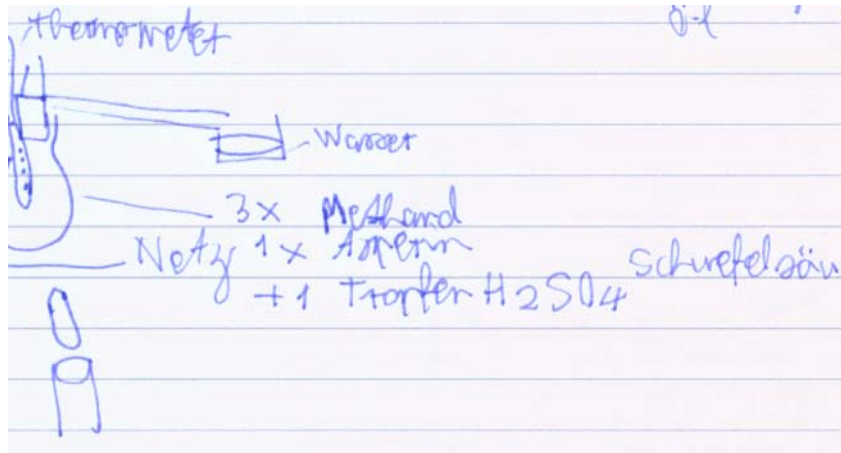 Thermometer
Öl
Wasser
3x Methanol
Netz 1x Aspirin
+1 Tropfen H2SO4 Schwefelsäu